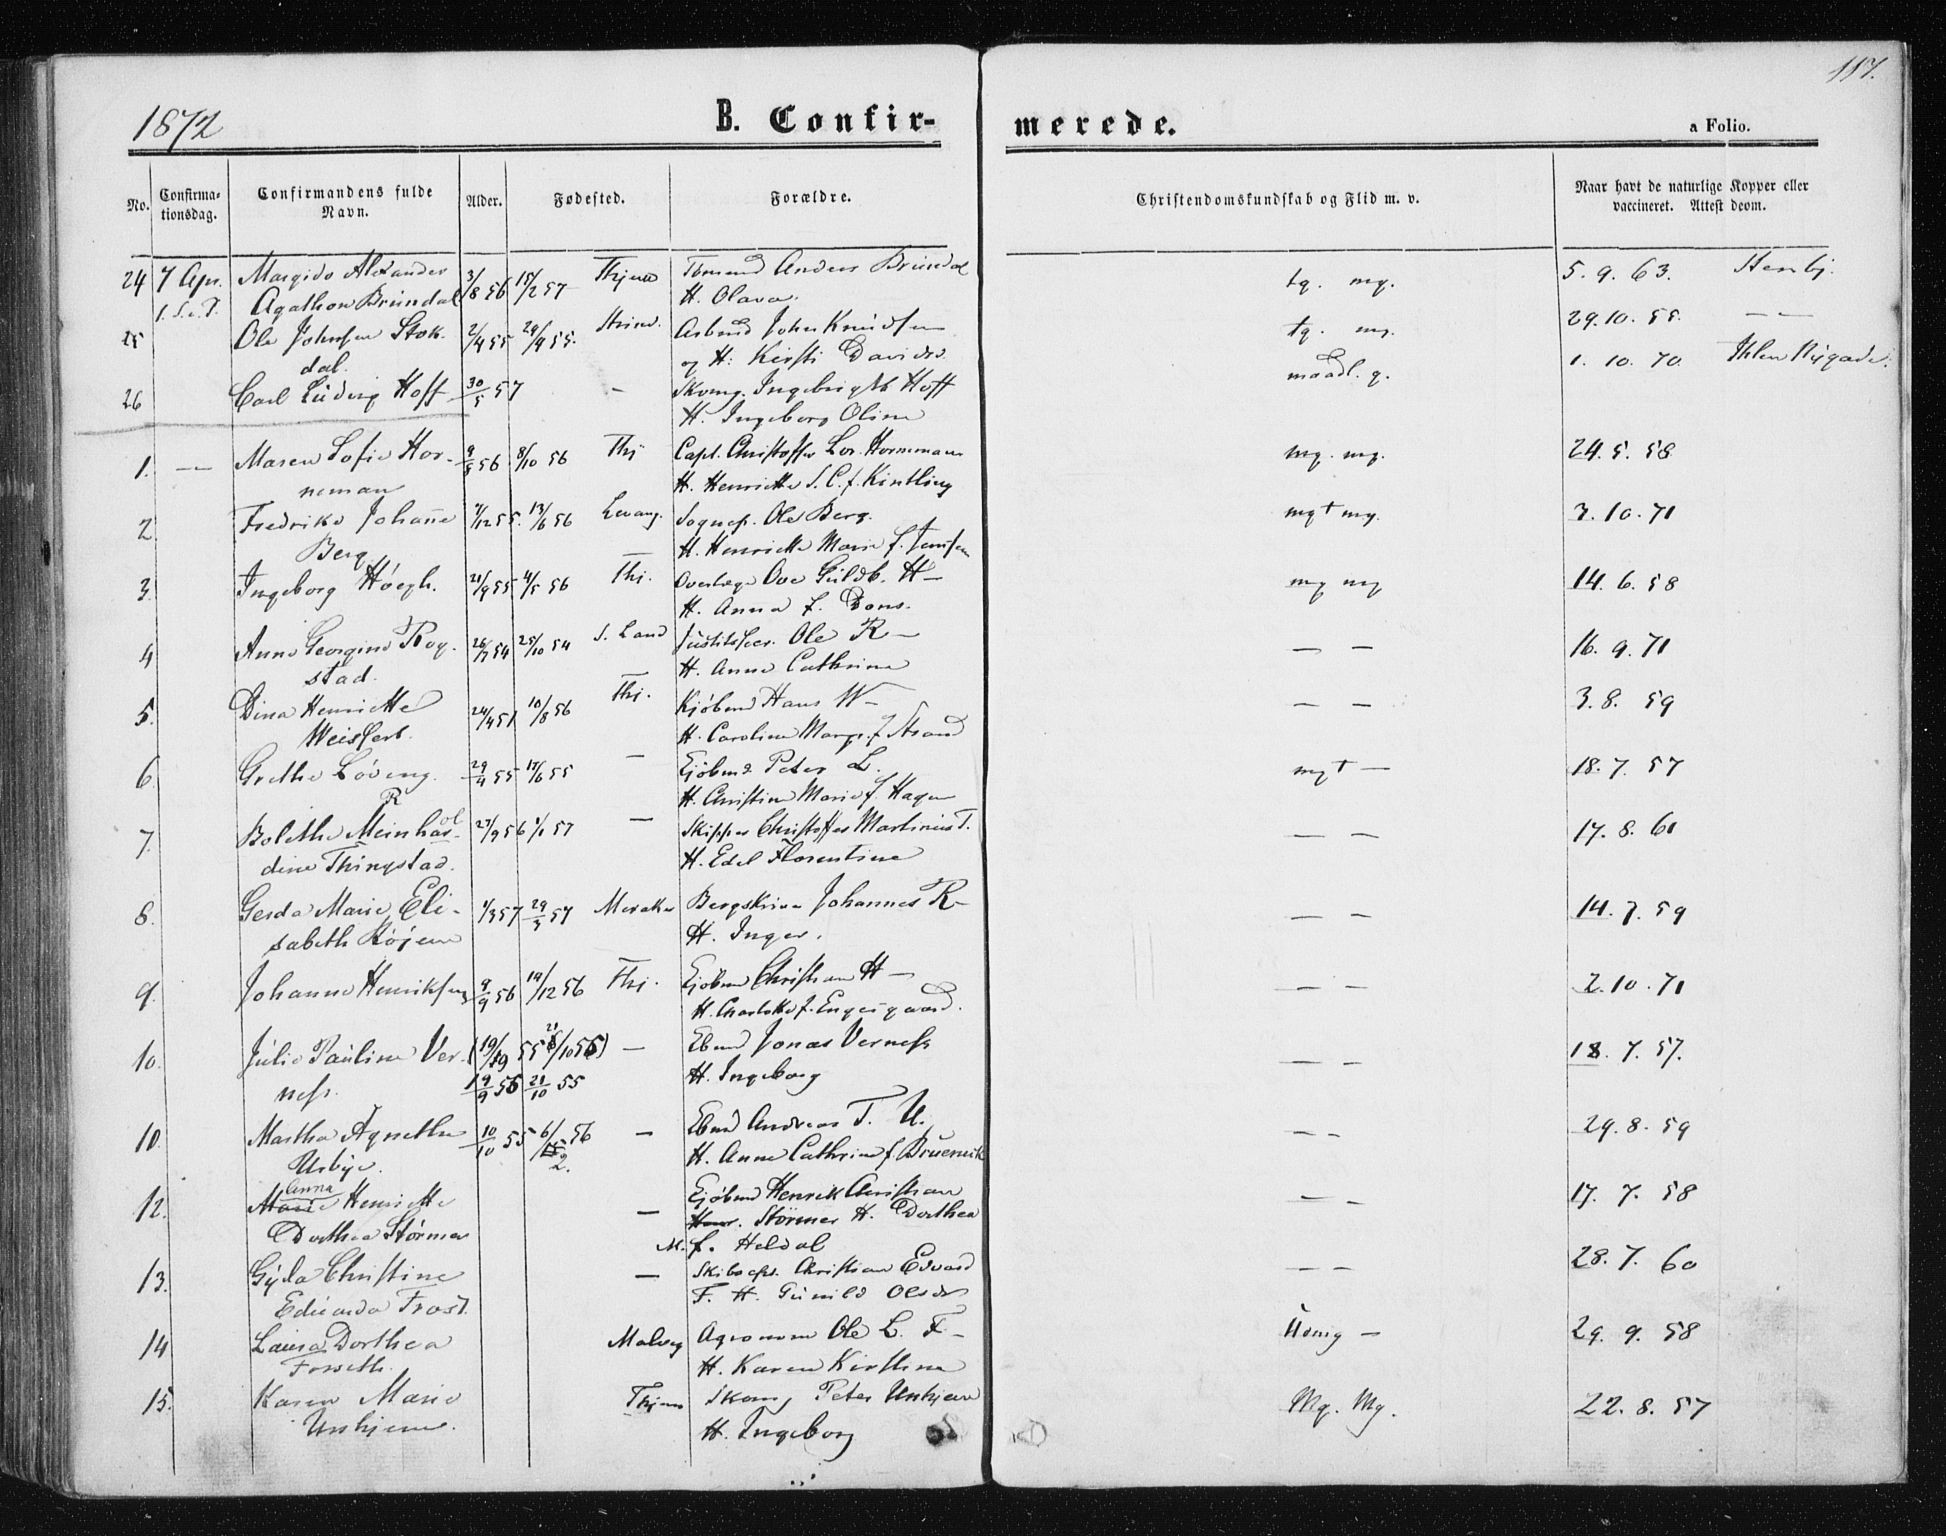 117.
1872 B. Confir- merede. a Folio.
No. Confirma-tionsdag. Confirmandens fulde Navn. Alder. Fødested. Forældre. Christendomskundskab og Flid m. v. Naar havt de naturlige Kopper eller vaccineret. Attest deom.
24 7 Apr. Margido Alexander 3/8 56 15/2 57 Thjem Anders Brundal tg. mg. 5. 9. 63.
Agathon Brundal H. Olava
25 Ole Johnsen Stok- 2/4 55 29/9 55. Strind. Arbmd John Knudsen tg. mg. 29. 10. 55. — —
dal. og H. Kirsti Davidsd.
26 Carl Ludvig Hoff 30/5 57 — Skomg. Ingebrigt Hoff maadl. g. 1. 10. 70.
H. Ingeborg Oline
1. — Maren Sofie Hor- 8/10 56 Thj Capt. Christoffer Lor. Hornemann mg. mg. 24. 5. 58
neman H. Henriette S. C. f. Kintling
2 Fredrike Johanne 13/6 56 Levang. Sognep. Ole Berg. mg+ mg. 3. 10. 71
Berg H. Henriette Marie f. Jensen
3. Ingeborg Höegh. 21/9 55 4/5 56 Thj. Overlæge Ove Guldb. H— mg mg 14. 6. 58
H. Anna f. Dons.
4 Anne Georgine Rog- 26/7 54 25/10 54 S. Land Ole R— — — 16. 9. 71
stad. H. Anne Cathrine
5. Dina Henriette 10/8 56 Thj. Kjöbmd Hans W— — — 3. 8. 59
H. Caroline Margr. f Strand
6 Grethe Löveng. 29/4 55 17/6 55 — Ejöbmd Peter L. mg+ — 18. 7. 57
H. Christine Marie f. Hagen
7. Bolethe Meinhar- 27/9 56 1/1 57 — Skipper Christoffer Martinus T. — — 17. 8. 61
dine Thingstad. H. Edel Florentine
8. Gerda Marie Eli- 1/3 57 29/3 57 Meraker Bergskriver Johannes R— — — 14. 7. 59
sabeth H. Inger.
9. Johanne Henriksen 9/9 56 19/12 56 Thj. Ejöbmd Christian H— — — 2. 10. 71
H. Charlotte f. Engesgaard.
10. Julie Pauline Ver- — Ebmd Jonas Verness — — 18. 7. 57.
ness. 19/9 55 21/10 55 H. Ingeborg
10. Martha Agnethe 10/10 55 6/2 56 — Ebmd Andreas T. U. — — 29. 8. 59
Usbye. H. Anne Cathrine f.
12. Anna Marie Henriette — Ejöbmd Henrik Christian — — 17. 7. 58
Dorthea Störmer Störmer H. Dorthea
M. f. Heldal
13. Gyda Christine — Christian Edvard — — 28. 7. 60
Edvarda Frost. F. H. Gunild Olsdr
14 Laura Dorthea Malvig Agronom Ole L. F— Udmg — 29. 9. 58
Forseth. H. Karen Kirstine
15. Karen Marie Thjem Skomg Peter Unhjem Mg. Mg. 22. 8. 57
Unhjem. H. Ingeborg